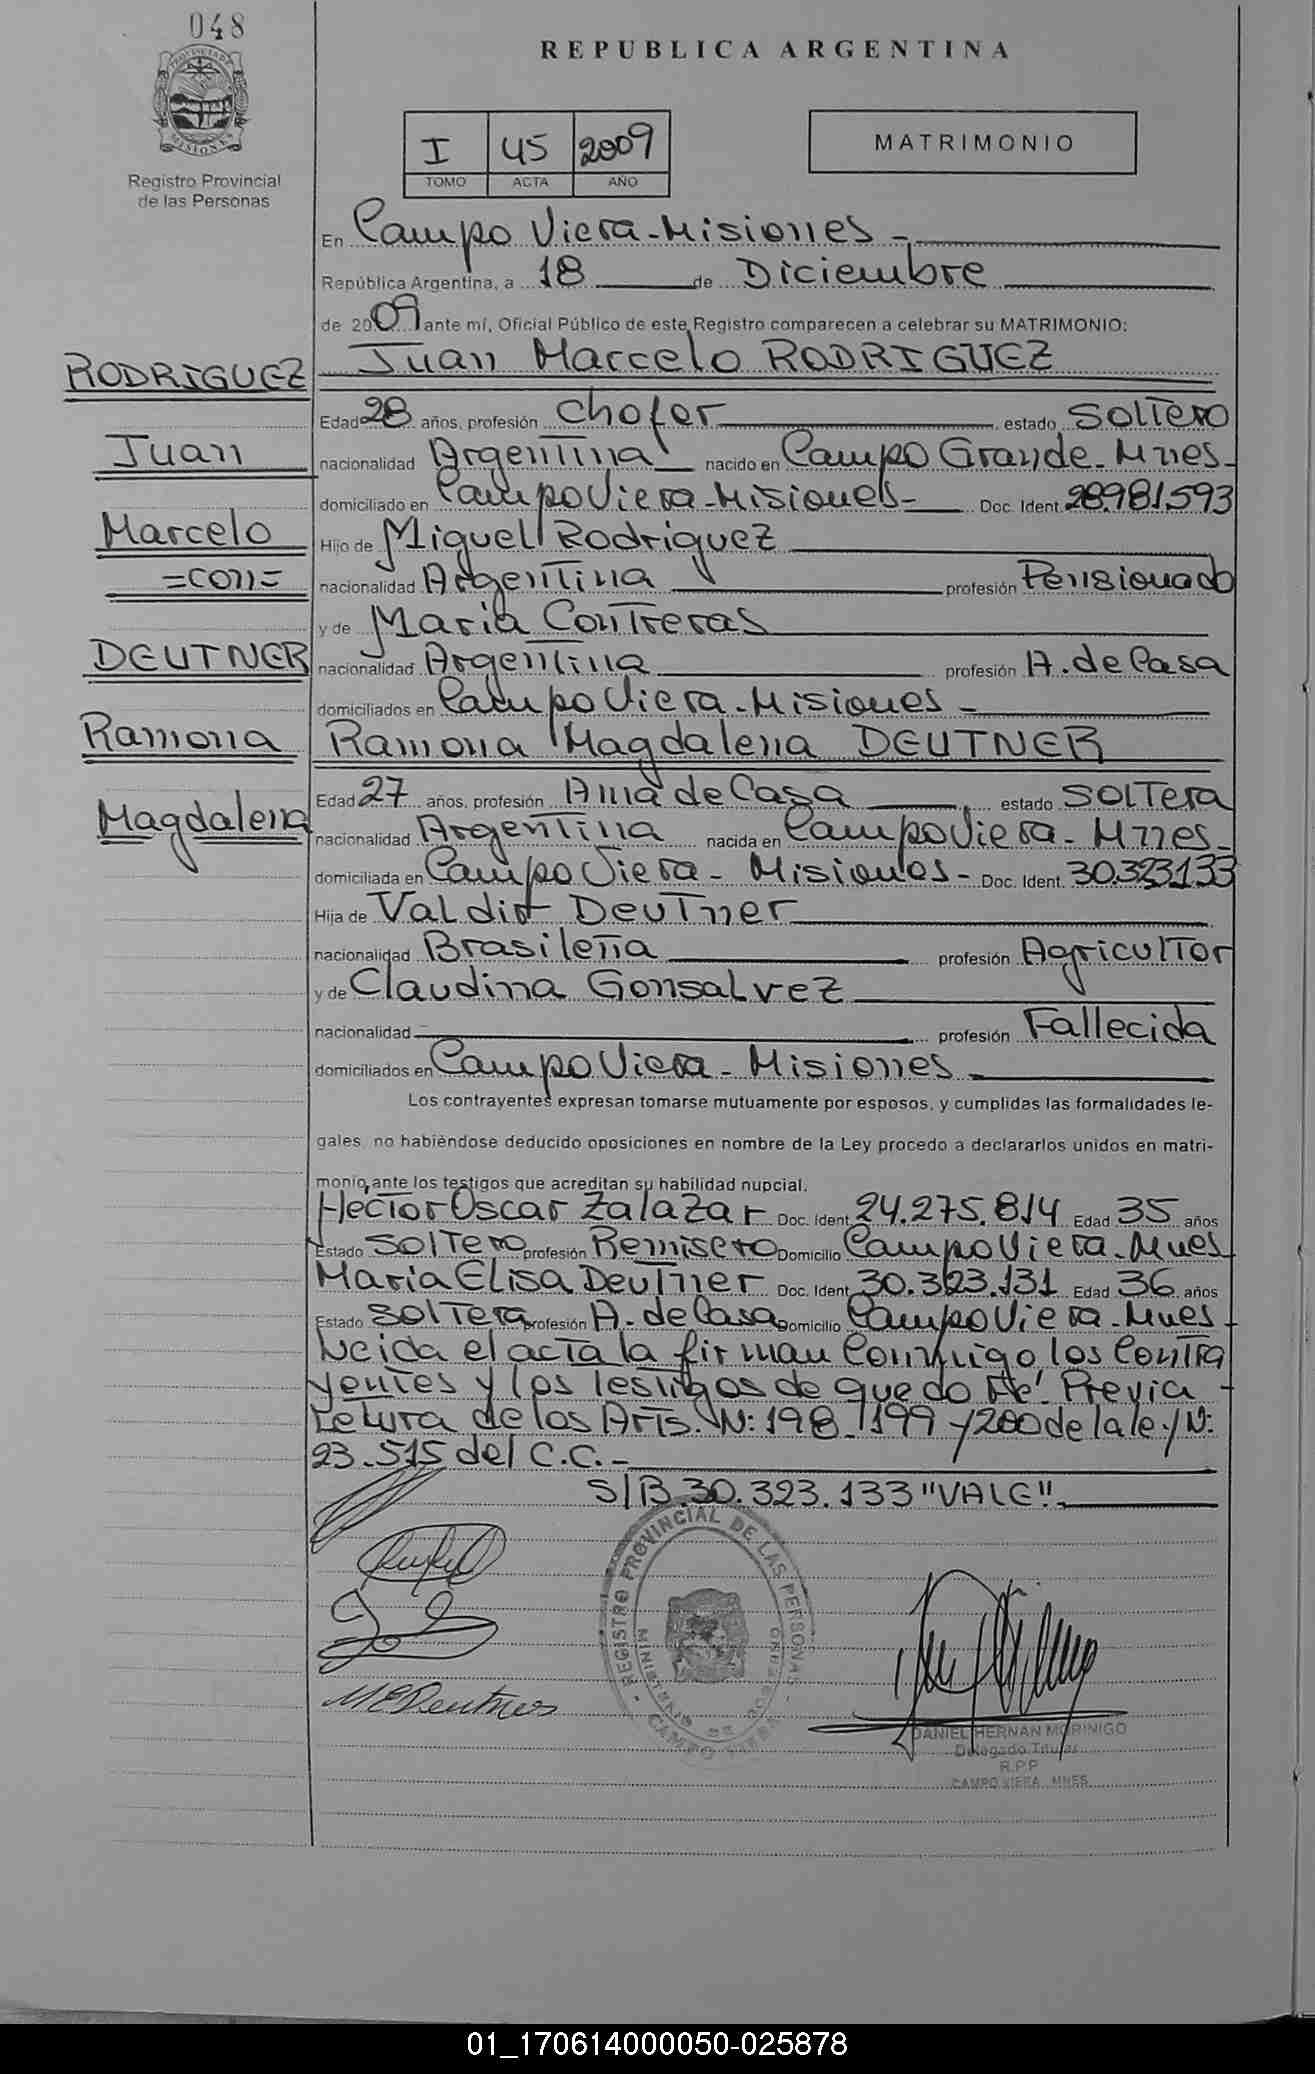 048
REPUBLICA ARGENTINA
PROVINCIA DE
MISIONES
Registro Provincial
de las Personas
I 45 2009
TOMO ACTA AÑO
MATRIMONIO
En Campo Viera-Misiones-
República Argentina, a 18 de Diciembre
de 2009 ante mí, Oficial Público de este Registro comparecen a celebrar su MATRIMONIO:
Juan Marcelo RODRIGUEZ
RODRIGUEZ
Juan
Marcelo
=con=
DEUTNER
Ramona
Magdalena
Edad 28 años, profesión Chofer estado Soltero
nacionalidad Argentina nacido en Campo Grande-Mnes-
domiciliado en Campo Viera-Misiones- Doc. Ident. 28.981.593
Hijo de Miguel Rodriguez
nacionalidad Argentina profesión Pensionado
y de Maria Contreras
nacionalidad Argentina profesión A. de Casa
domiciliados en Campo Viera-Misiones-
Ramona Magdalena DEUTNER
Edad 27 años, profesión Ama de Casa estado Soltera
nacionalidad Argentina nacida en Campo Viera-Mnes-
domiciliada en Campo Viera-Misiones- Doc. Ident. 30.323.133
Hija de Valdir Deutner
nacionalidad Brasileña profesión Agricultor
y de Claudina Gonsalvez
nacionalidad profesión Fallecida
domiciliados en Campo Viera-Misiones-
Los contrayentes expresan tomarse mutuamente por esposos, y cumplidas las formalidades le-
gales, no habiéndose deducido oposiciones en nombre de la Ley procedo a declararlos unidos en matri-
monio, ante los testigos que acreditan su habilidad nupcial.
Hector Oscar Zalazar Doc. Ident. 24.275.814 Edad 35 años
Estado Soltero profesión Remisero Domicilio Campo Viera-Mnes-
Maria Elisa Deutner Doc. Ident. 30.323.131 Edad 36 años
Estado Soltera profesión A. de Casa Domicilio Campo Viera-Mnes-
Leida el acta la firman Conmigo, los Contra
yentes y los Testigos de que do Fe! Previa -
Letura de los Arts. N: 198-199 y 200 de la ley N:
23.515 del C.C.-
S/B.30.323.133 "VALE".
REGISTRO PROVINCIAL DE LAS PERSONAS
MINISTERIO DE GOBIERNO
CAMPO VIERA
M E Deutner
DANIEL HERNAN MORINIGO
Delegado Titular
R.P.P
CAMPO VIERA MNES
01_170614000050-025878